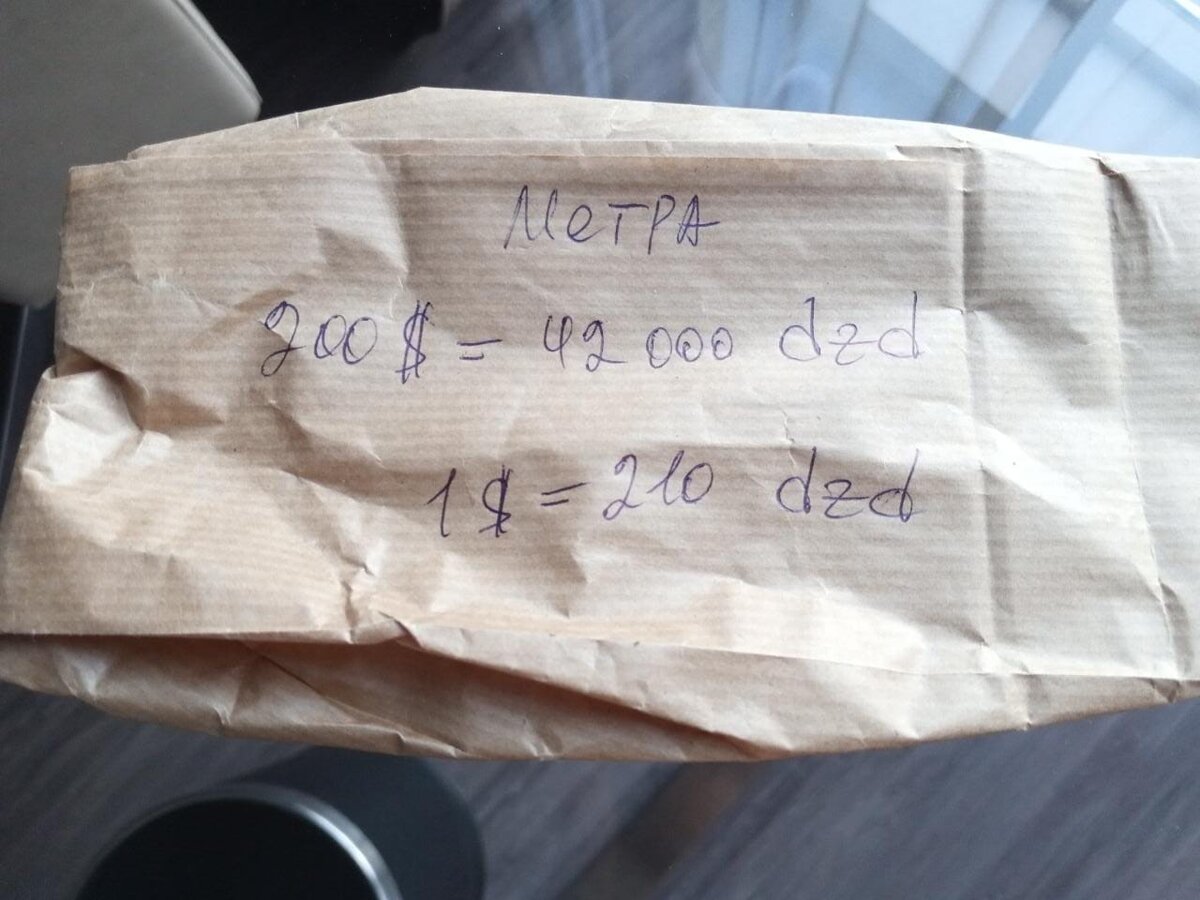 Метра
200 $ = 42 000 dzd
1 $ = 210 dzd